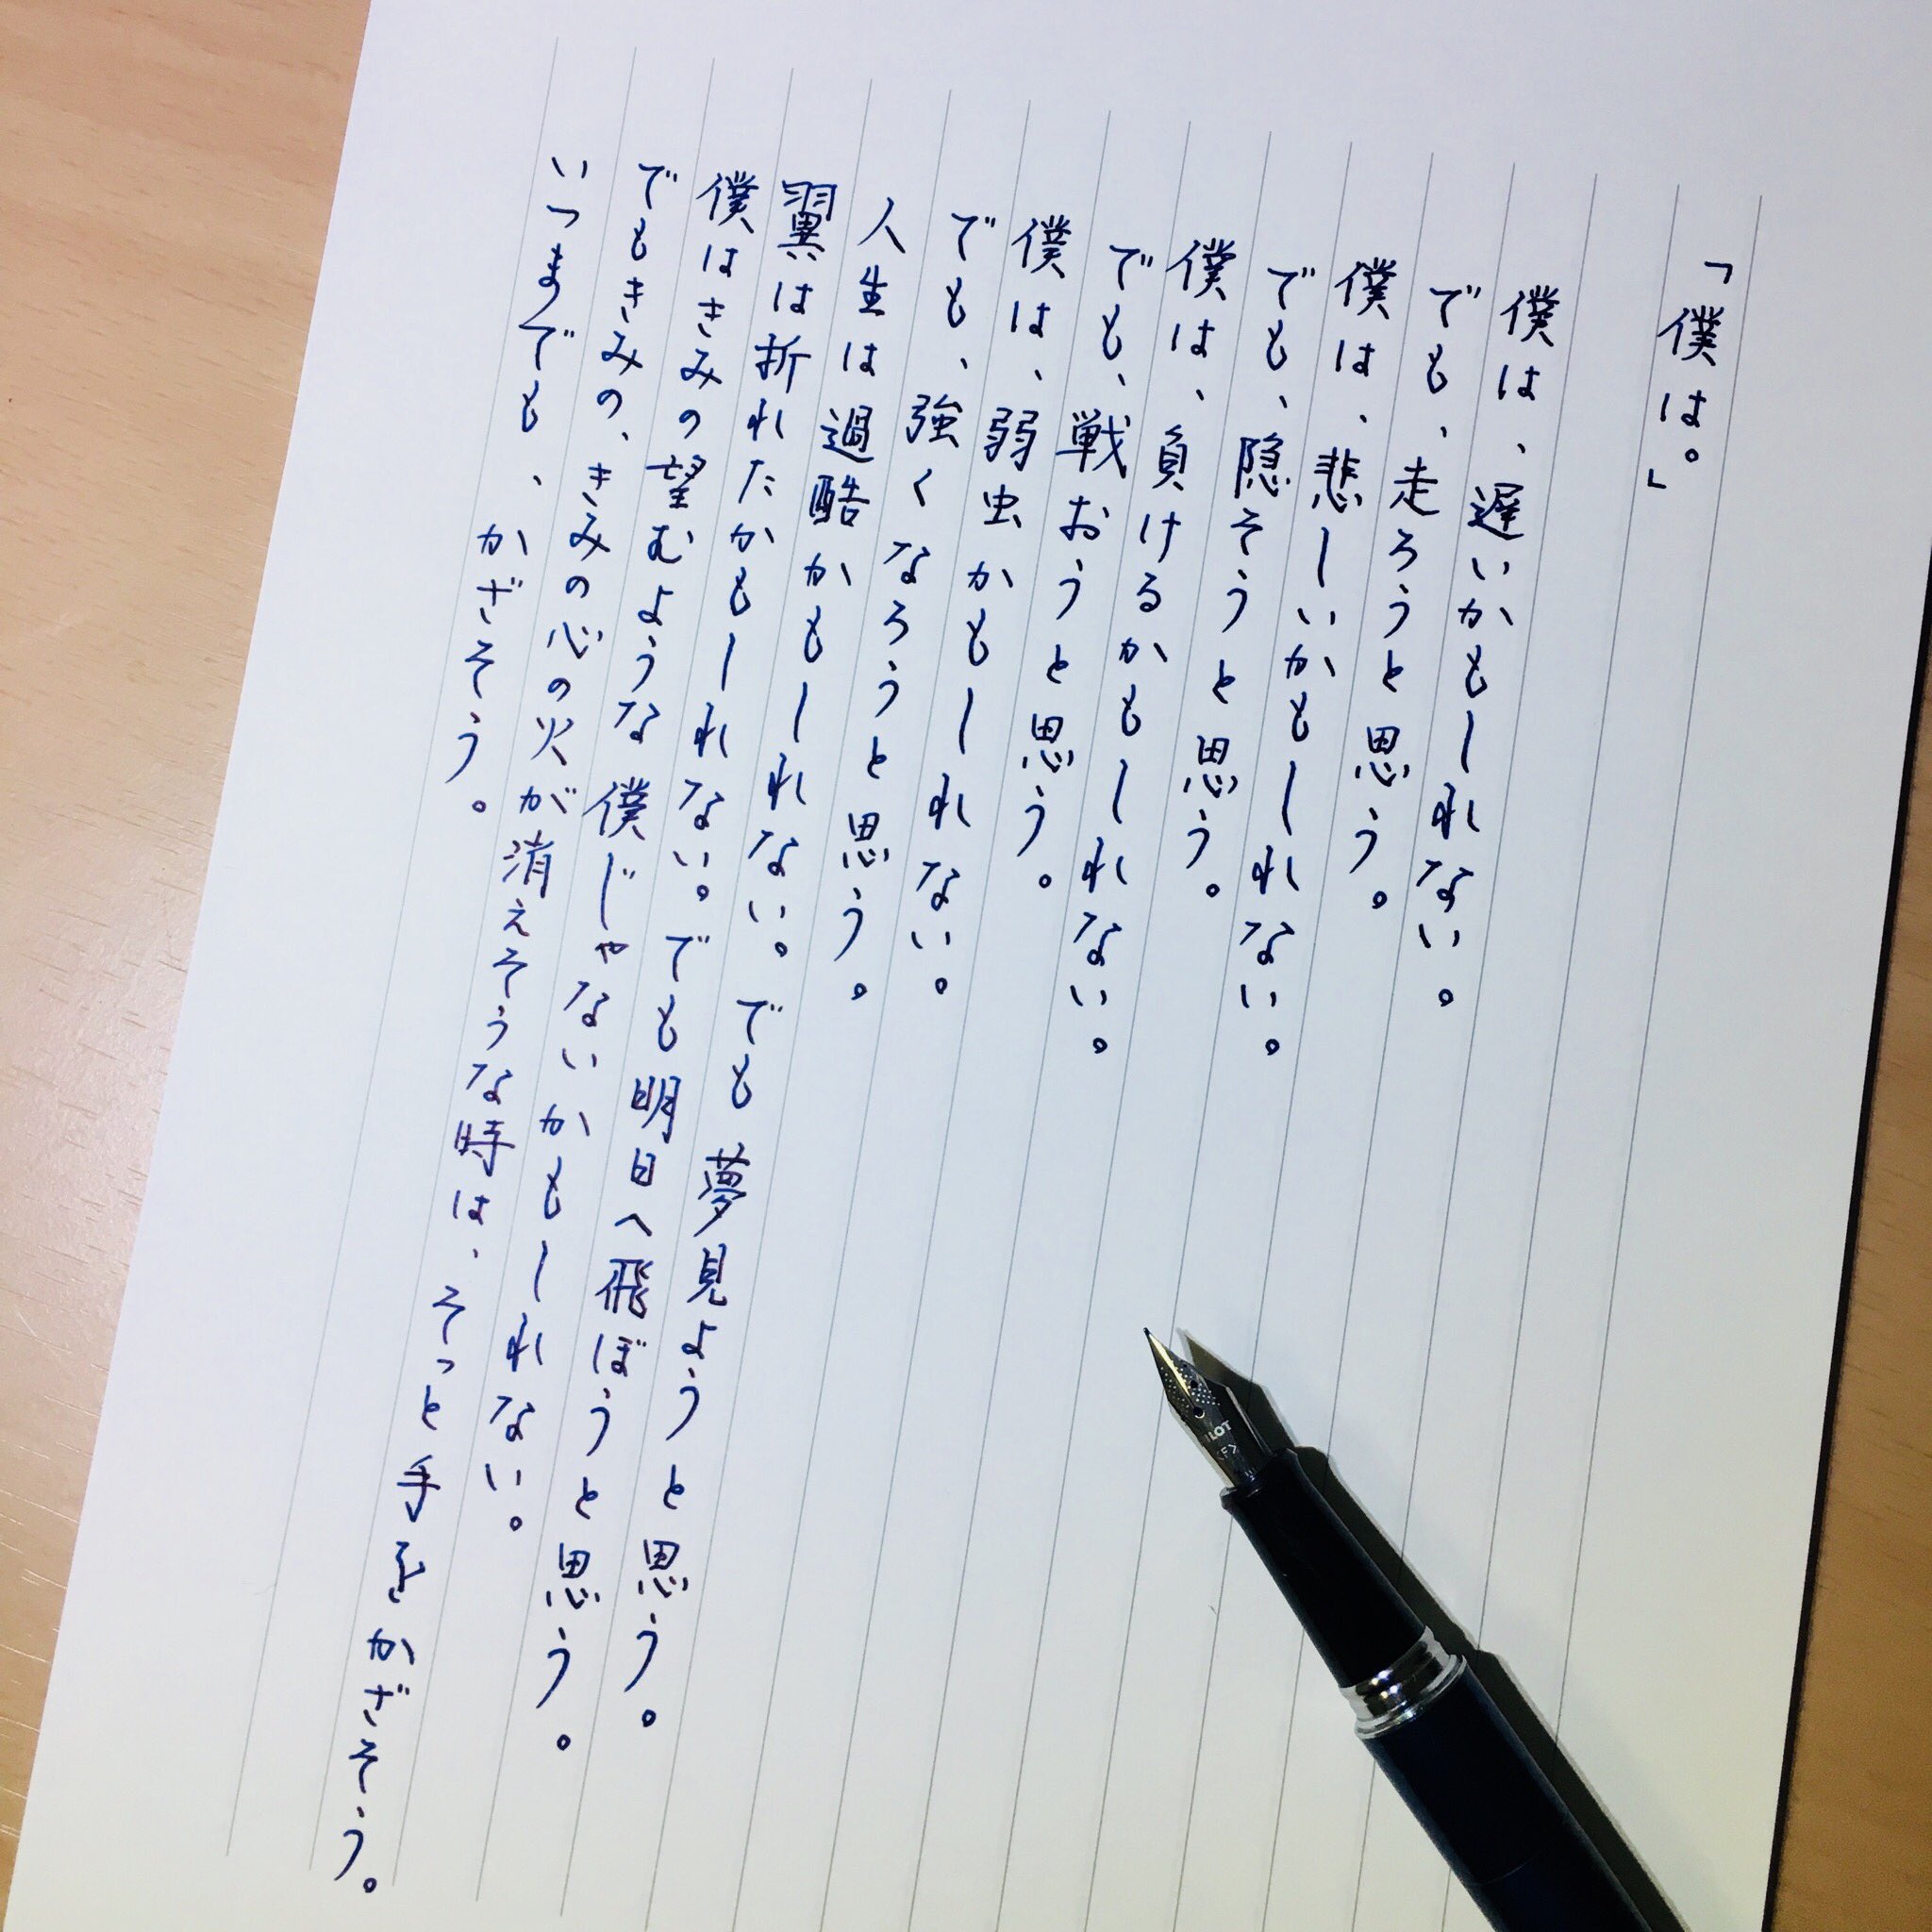 「僕は。」
僕は、遅いかもしれない。
でも、走ろうと思う。
僕は、悲しいかもしれない。
でも、隠そうと思う。
僕は、負けるかもしれない。
でも、戦おうと思う。
僕は、弱虫かもしれない。
でも、強くなろうと思う。
人生は過酷かもしれない。でも夢見ようと思う。
翼は折れたかもしれない。でも明日へ飛ぼうと思う。
僕はきみの望むような僕じゃないかもしれない。
でもきみの、きみの心の火が消えそうな時は、そっと手をかざそう。
いつまでも、かざそう。
PILOT
<F>